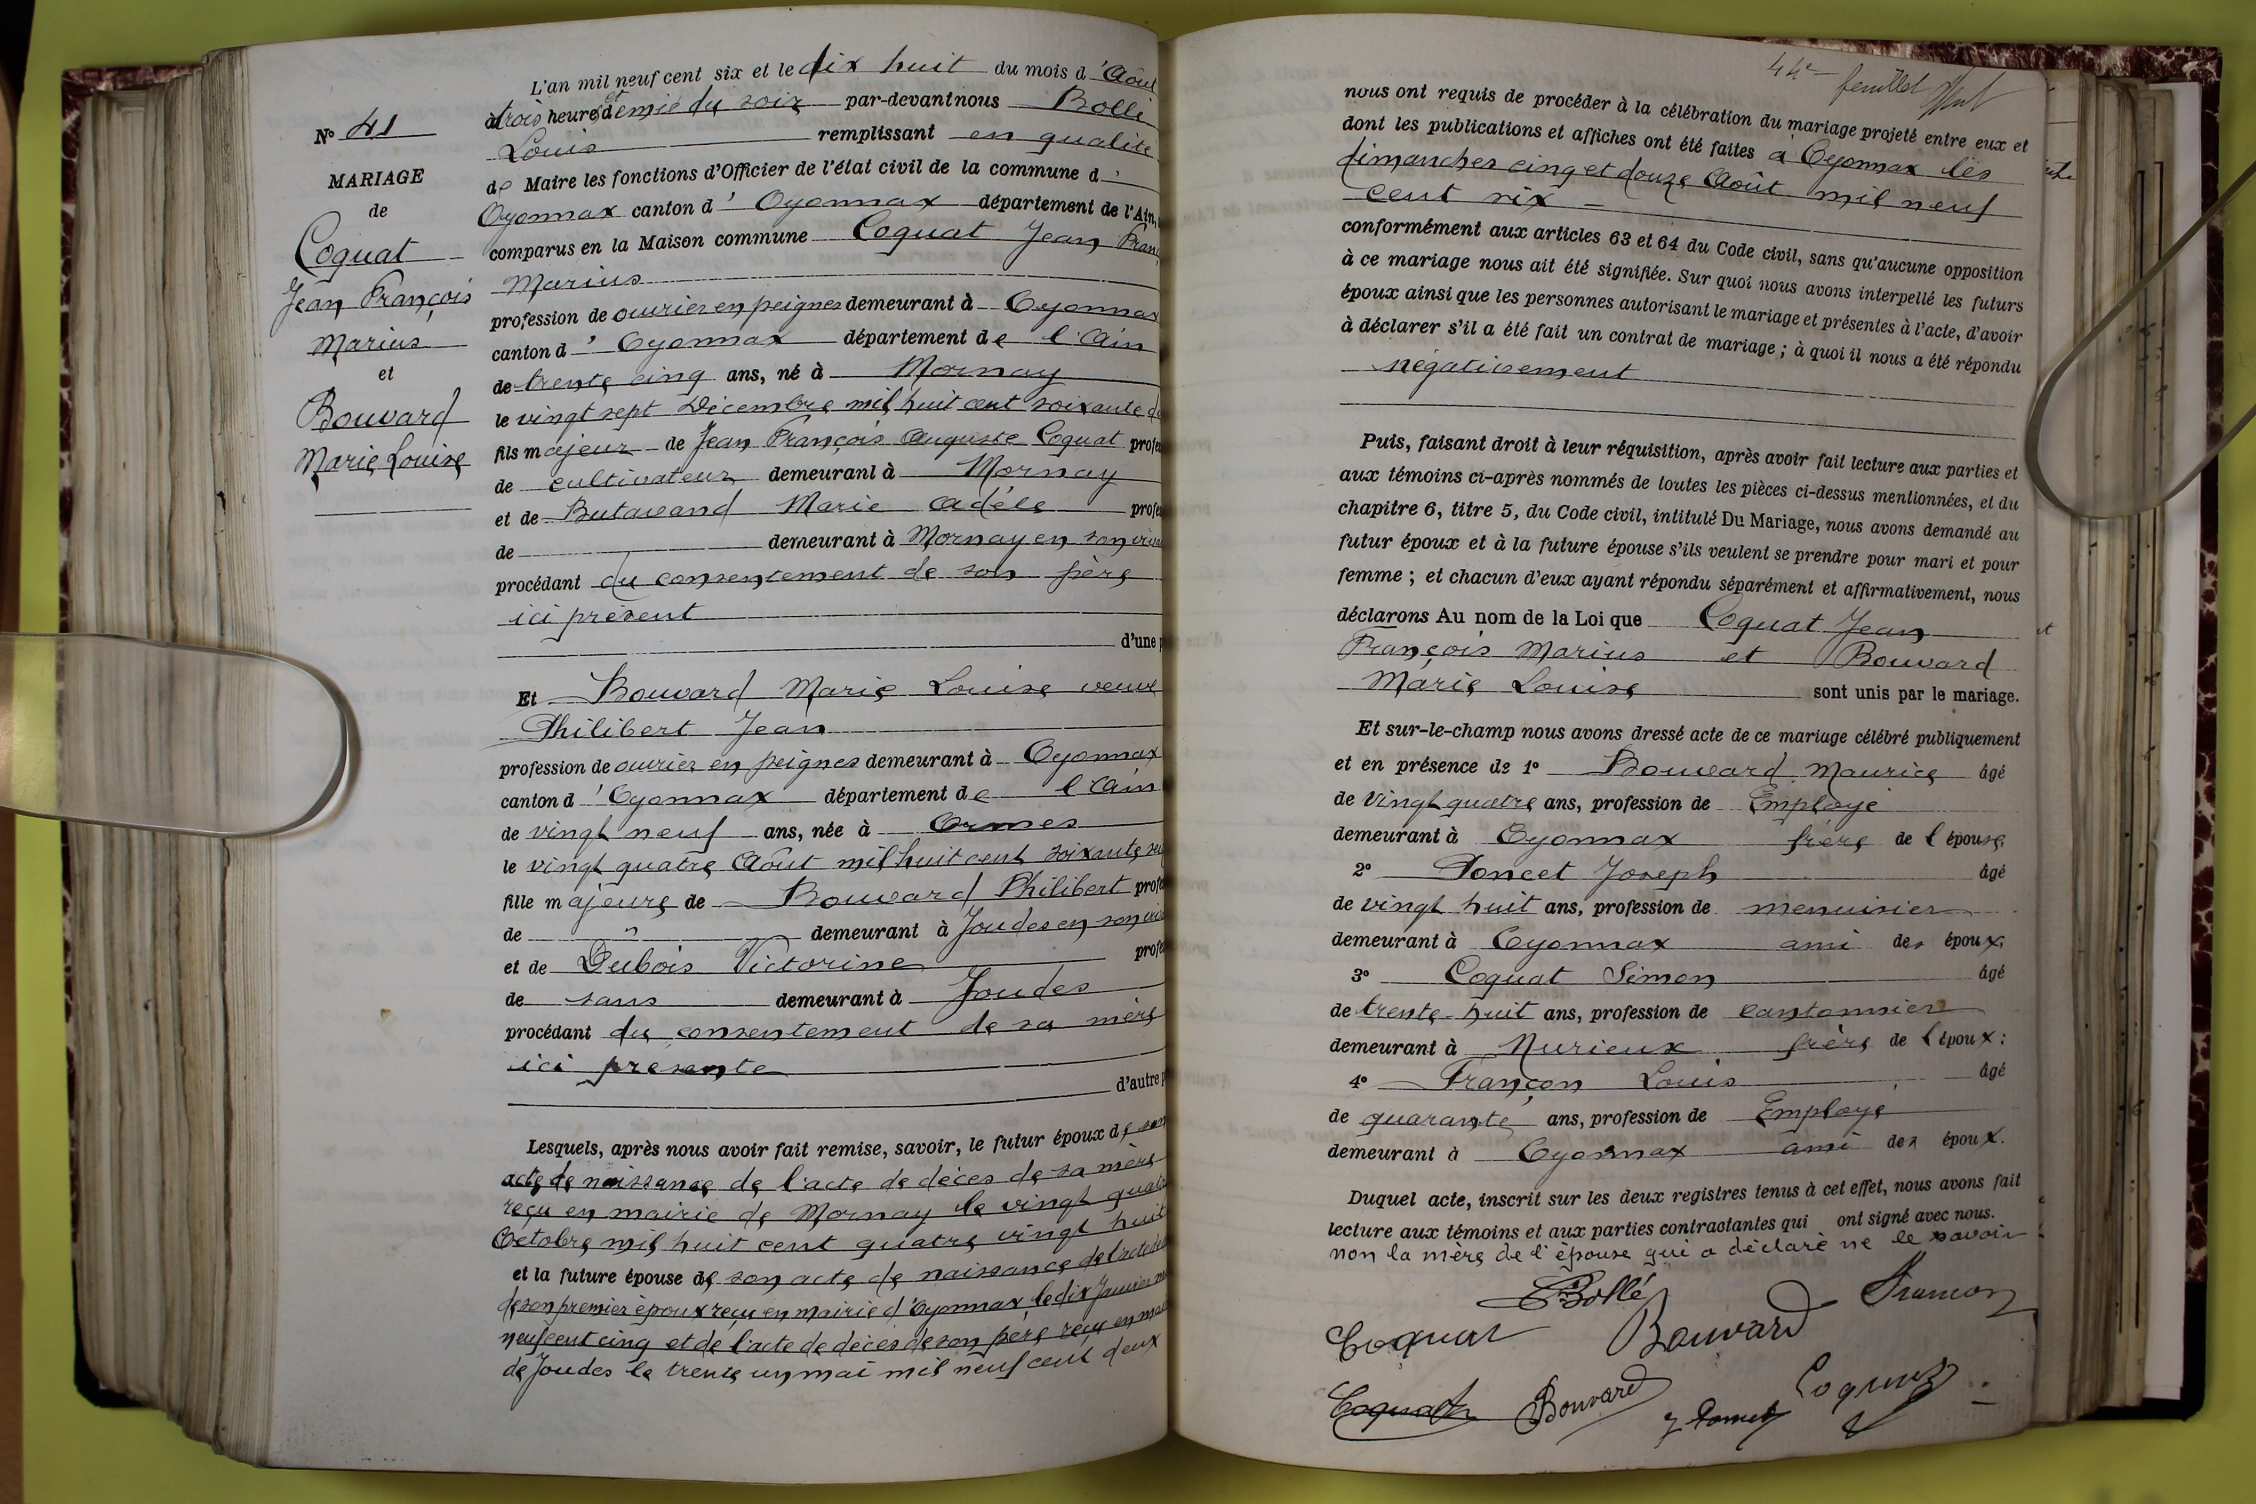 N° 41
MARIAGE
de
Coquat
Jean François
Marius
et
Bouvard
Marie Louise
L'an mil neuf cent six et le dix huit du mois d'Août
à trois heures et demie du soir par-devant nous Bollé
Louis remplissant en qualité
de Maire les fonctions d'Officier de l'état civil de la commune d'
Oyonnax canton d'Oyonnax département de l'Ain,
comparus en la Maison commune Coquat Jean Fran
Marius
profession de ouvrier en peignes demeurant à Oyonnax
canton d'Oyonnax département de l'Ain
de trente cinq ans, né à Mornay
le vingt sept Décembre mil huit cent soixante d
fils majeur de Jean François Auguste Coquat profes
de cultivateur demeurant à Mornay
et de Butavand Marie Adèle profes
de demeurant à Mornay en son viva
procédant du consentement de son père
ici présent
d'une p
Et Bouvard Marie Louise veuve
Philibert Jean
profession de ouvrier en peignes demeurant à Oyonnax
canton d'Oyonnax département de l'Ain
de vingt neuf ans, née à Ormes
le vingt quatre Août mil huit cent soixante sei
fille majeure de Bouvard Philibert profe
de " demeurant à Joudes en son viv
et de Dubois Victorine profe
de sans demeurant à Joudes
procédant du consentement de sa mère
ici présente
d'autre p
Lesquels, après nous avoir fait remise, savoir, le futur époux de son
acte de naissance de l'acte de décès de sa mère
reçu en mairie de Mornay le vingt quatre
Octobre mil huit cent quatre vingt huit
et la future épouse de son acte de naissance de l'acte de
de son premier époux reçu en mairie d'Oyonnax le dix Janvier m
neuf cent cinq et de l'acte de décès de son père reçu en mai
de Joudes le trente un mai mil neuf cent deux
44e feuillet
nous ont requis de procéder à la célébration du mariage projeté entre eux et
dont les publications et affiches ont été faites à Oyonnax les
dimanches cinq et douze Août mil neuf
cent six
conformément aux articles 63 et 64 du Code civil, sans qu'aucune opposition
à ce mariage nous ait été signifiée. Sur quoi nous avons interpellé les futurs
époux ainsi que les personnes autorisant le mariage et présentes à l'acte, d'avoir
à déclarer s'il a été fait un contrat de mariage ; à quoi il nous a été répondu
négativement
Puis, faisant droit à leur réquisition, après avoir fait lecture aux parties et
aux témoins ci-après nommés de toutes les pièces ci-dessus mentionnées, et du
chapitre 6, titre 5, du Code civil, intitulé Du Mariage, nous avons demandé au
futur époux et à la future épouse s'ils veulent se prendre pour mari et pour
femme ; et chacun d'eux ayant répondu séparément et affirmativement, nous
déclarons Au nom de la Loi que Coquat Jean
François Marius et Bouvard
Marie Louise sont unis par le mariage.
Et sur-le-champ nous avons dressé acte de ce mariage célébré publiquement
et en présence de 1° Bouvard Maurice âgé
de vingt quatre ans, profession de Employé
demeurant à Oyonnax frère de l'épouse,
2° Poncet Joseph âgé
de vingt huit ans, profession de menuisier
demeurant à Oyonnax ami des époux,
3° Coquat Simon âgé
de trente-huit ans, profession de cantonnier
demeurant à Nurieux frère de l'époux ;
4° Françon Louis âgé
de quarante ans, profession de Employé
demeurant à Oyonnax ami des époux.
Duquel acte, inscrit sur les deux registres tenus à cet effet, nous avons fait
lecture aux témoins et aux parties contractantes qui ont signé avec nous.
non la mère de l'épouse qui a déclaré ne le savoir
Bollé
Françon
Coquat Bouvard
Coquat Bouvard J Poncet Coquat